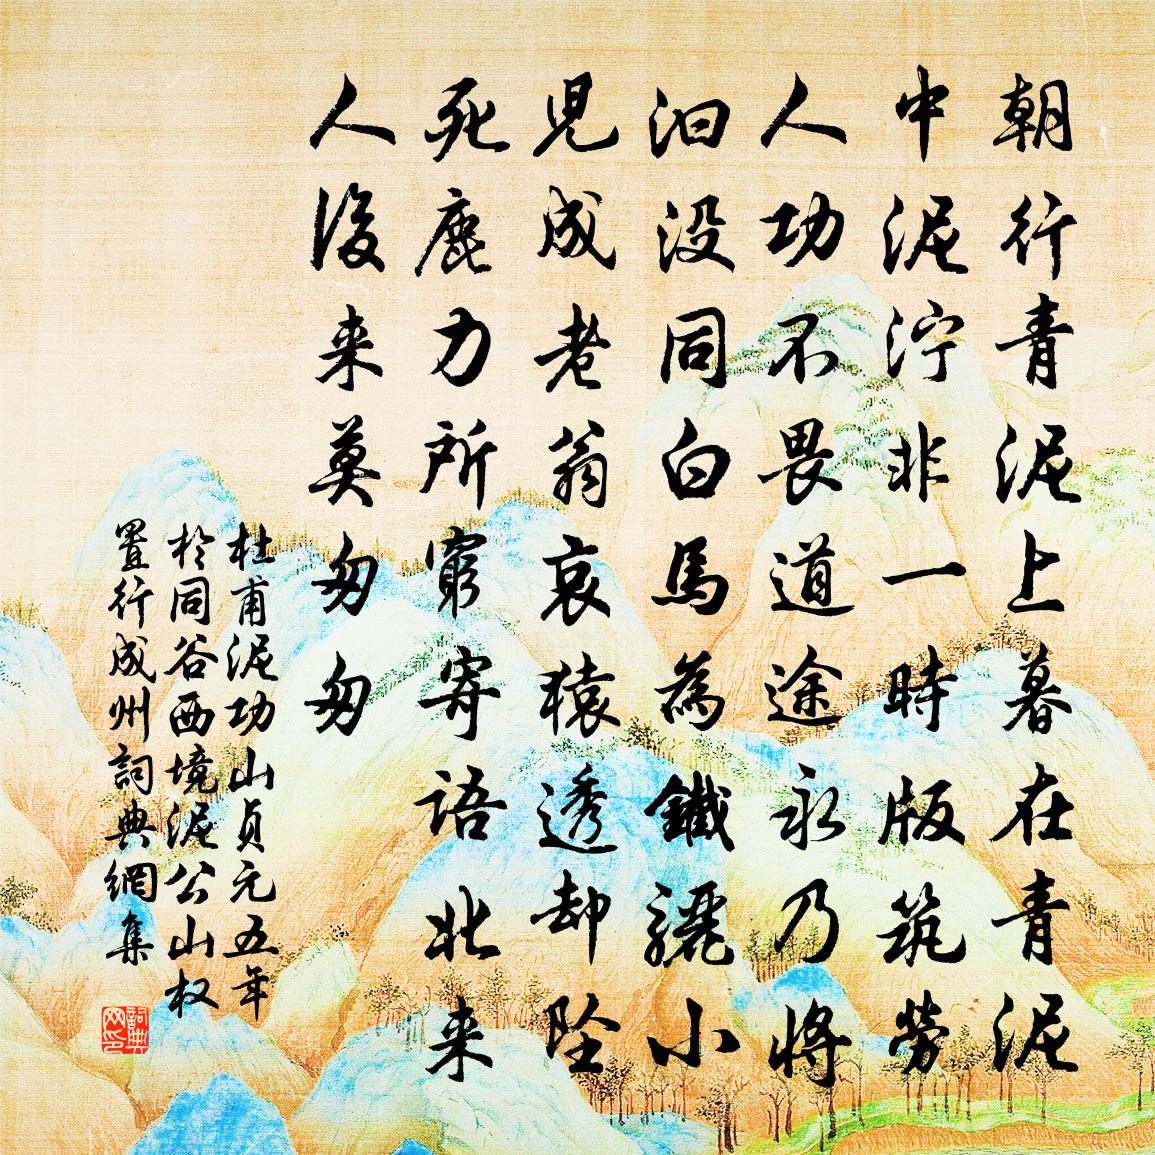 朝行青泥上暮在青泥
中泥泞非一時版筑勞
人功不畏道途永乃將
汩没同白馬為鐵驪小
児成老翁哀猿透却坠
死鹿力所窮寄語北来
人後来莫匆匆
杜甫泥功山貞元五年
於同谷西境泥公山权
置行成州詞典網集
詞典
网印